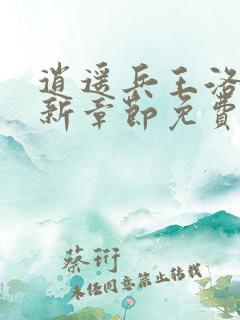 逍遥兵王洛
新章节免费
蔡衍
未经同意禁止转载